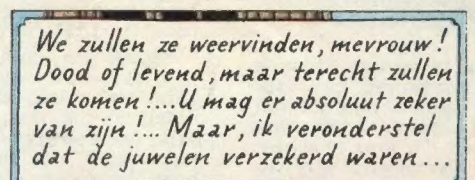 We zullen ze weervinden, mevrouw!
Dood of levend, maar terecht zullen
ze komen!...U mag er absoluut zeker
van zijn!... Maar, ik veronderstel
dat de juwelen verzekerd waren...